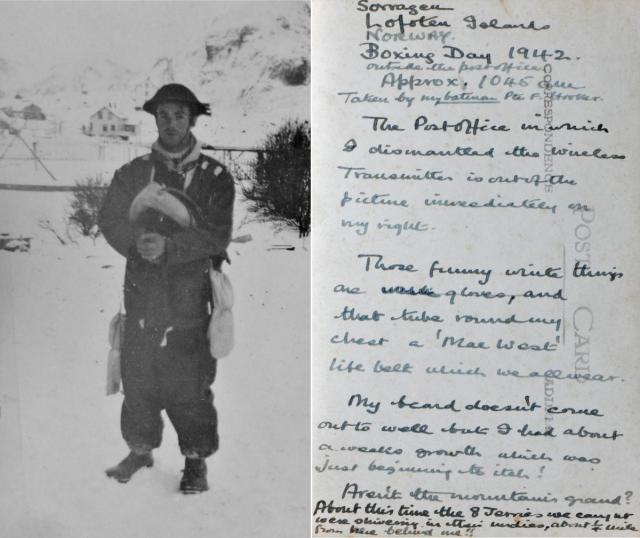 Sorvagen
Lofoten Islands
NORWAY.
Boxing Day 1942.
outside the postoffice
Approx. 1045 am
Taken by my batman Pte F. Hooker.
The Postoffice in which
I dismantled the wireless
Transmitter is out of the
picture immediately on
my right.
Those funny white things
are gloves, and
that tube round my
chest a 'Mae West'
life belt which we all wear.
My beard doesn't come
out to well but I had about
a weeks growth which was
just beginning to itch!
Aren't the mountains grand?
About this time the 8 Jerries we caught
were shivering in their undies, about ¼ mile
from here behind me!!
CORRESPONDENCE
POST CARD